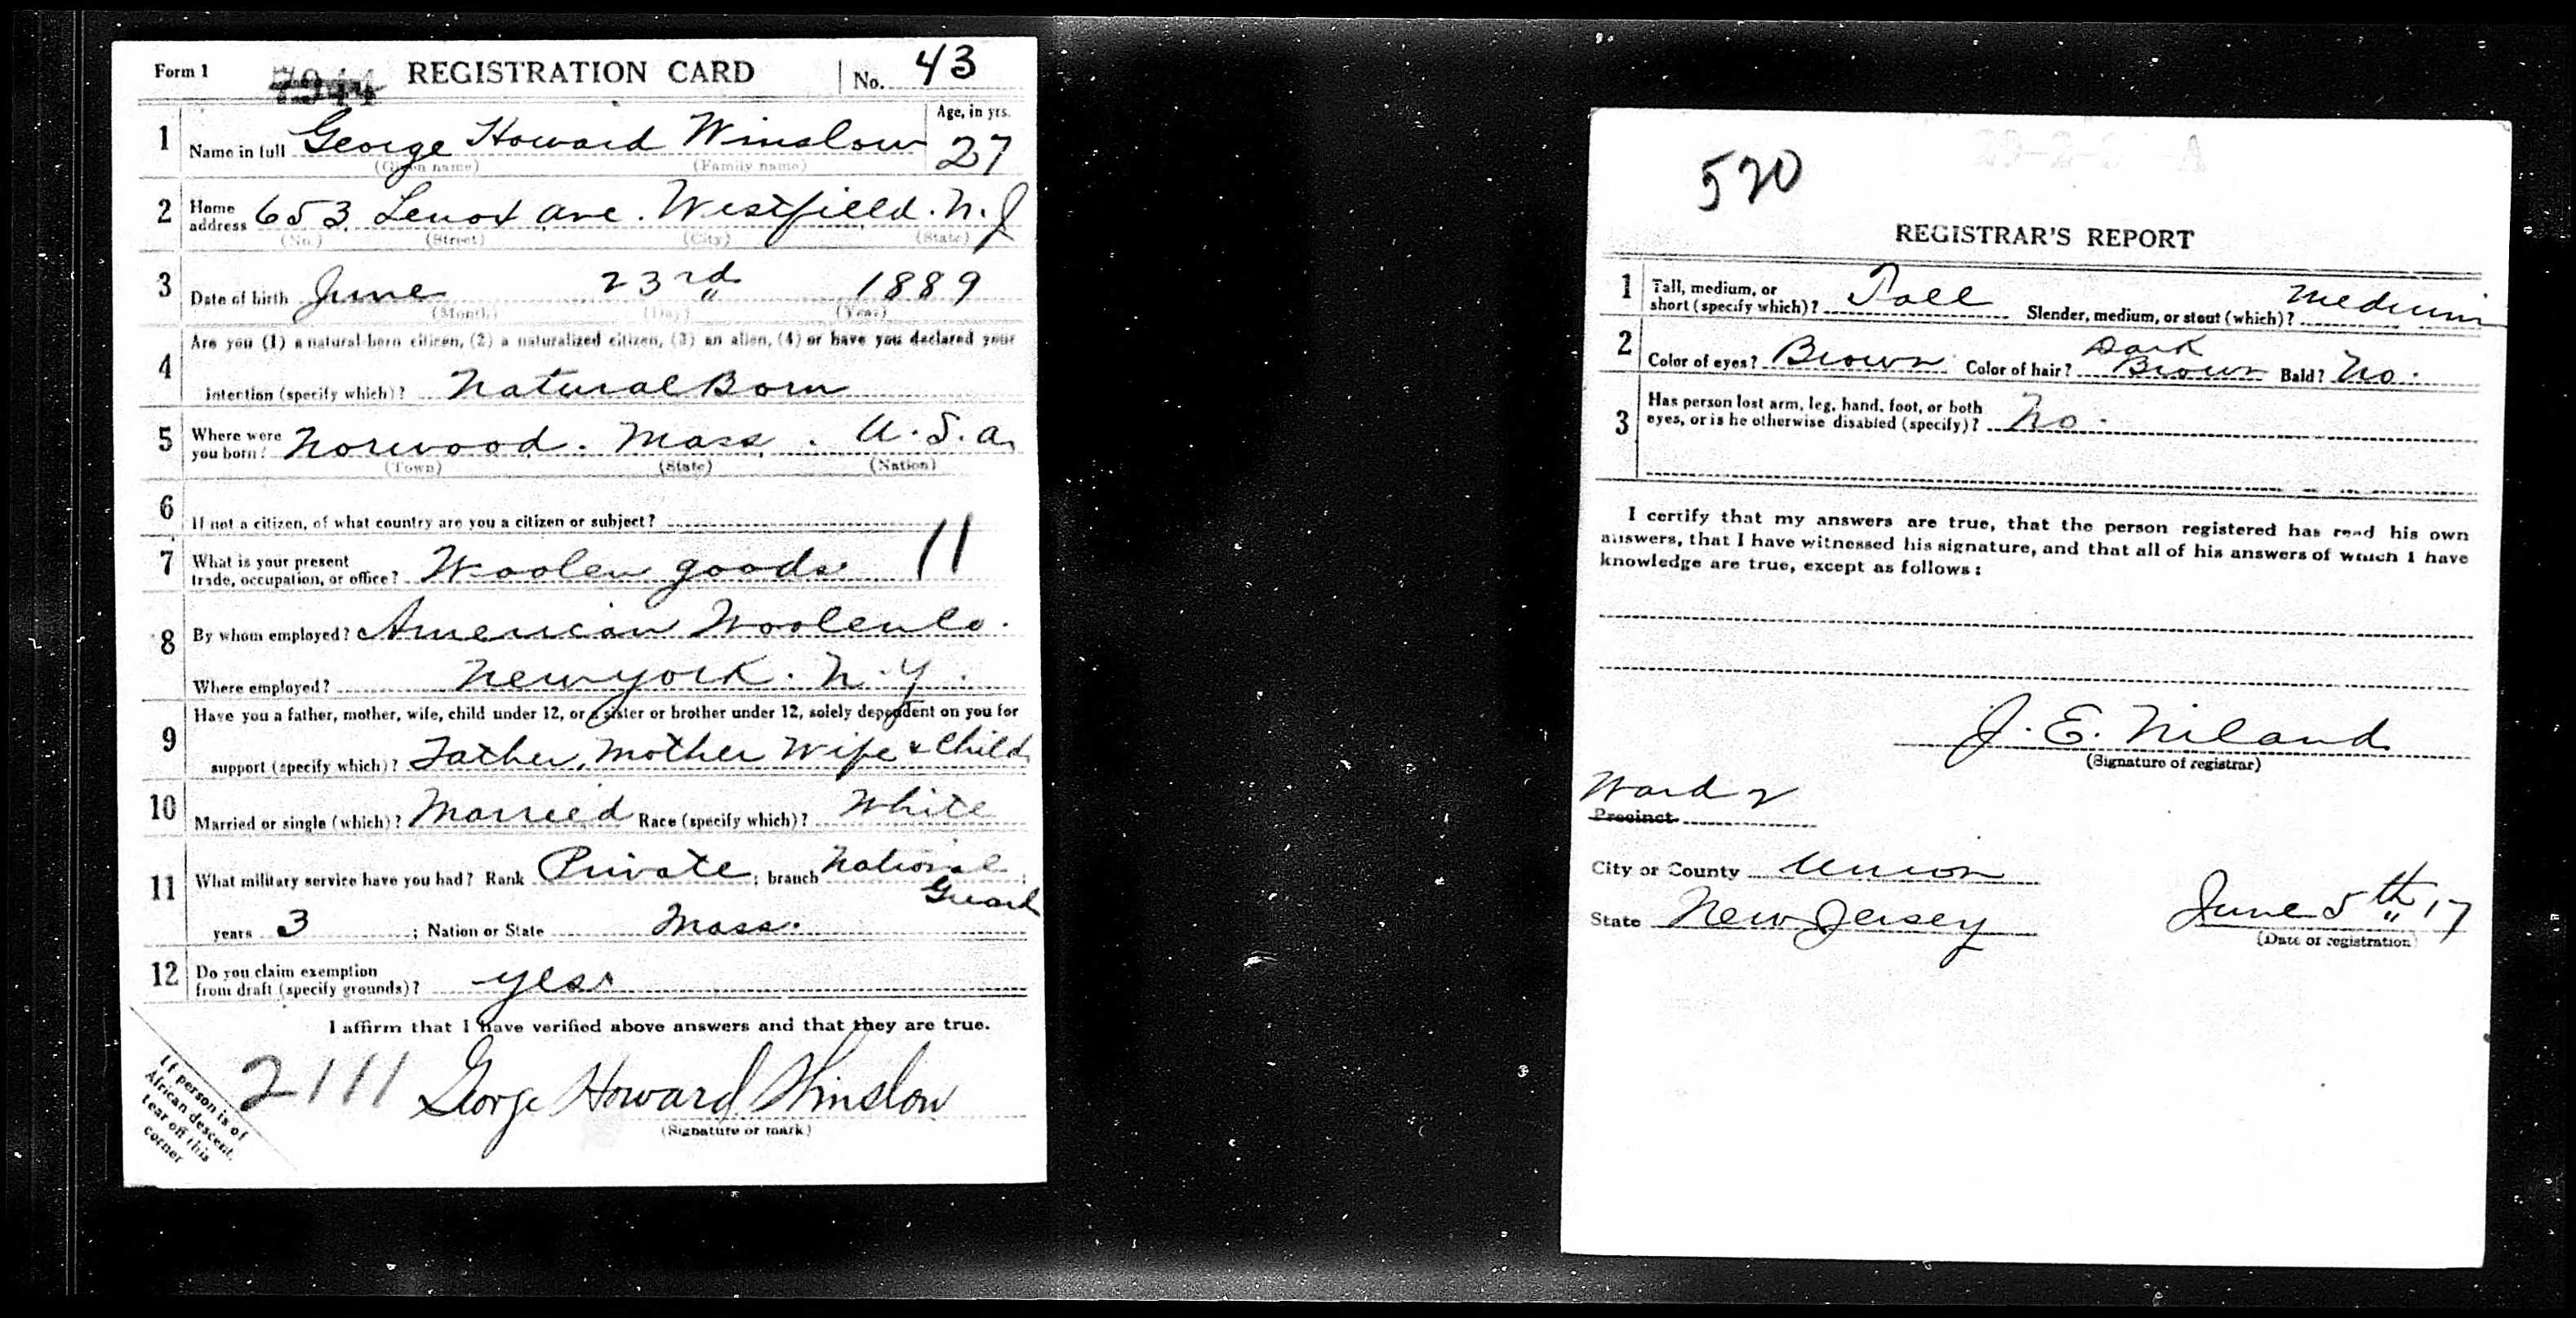 Form 1 REGISTRATION CARD No. 43
1 Name in full George Howard Winslow Age, in yrs. 27
(Given name) (Family name)
2 Home address 653 Lenox ave. Westfield. N. J
(No.) (Street) (City) (State)
3 Date of birth June 23rd 1889
(Month) (Day) (Year)
4 Are you (1) a natural-born citizen, (2) a naturalized citizen, (3) an alien, (4) or have you declared your
intention (specify which)? Natural Born
5 Where were you born? Norwood. Mass. U.S.a.
(Town) (State) (Nation)
6 If not a citizen, of what country are you a citizen or subject?
7 What is your present trade, occupation, or office? Woolen goods 11
8 By whom employed? American Woolen Co.
Where employed? New york. N.Y.
9 Have you a father, mother, wife, child under 12, or a sister or brother under 12, solely dependent on you for
support (specify which)? Father, Mother Wife & Child
10 Married or single (which)? Married Race (specify which)? White
11 What military service have you had? Rank Private; branch National Guard;
years 3; Nation or State Mass.
12 Do you claim exemption from draft (specify grounds)? yes.
I affirm that I have verified above answers and that they are true.
2111 George Howard Winslow
(Signature or mark)
If person is of
African descent,
tear off this
corner
520
REGISTRAR'S REPORT
1 Tall, medium, or short (specify which)? Tall Slender, medium, or stout (which)? Medium
2 Color of eyes? Brown Color of hair? Dark Brown Bald? No.
3 Has person lost arm, leg, hand, foot, or both
eyes, or is he otherwise disabled (specify)? No.
I certify that my answers are true, that the person registered has read his own
answers, that I have witnessed his signature, and that all of his answers of which I have
knowledge are true, except as follows:
J. E. Niland
(Signature of registrar)
Ward 2
Precinct
City or County Union
State New Jersey June 5th 17
(Date of registration)